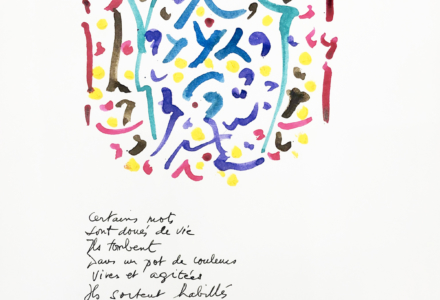 Certains mots
sont doués de vie
Ils tombent
Dans un pot de couleurs
vives et agitées
Ils sortent habillés